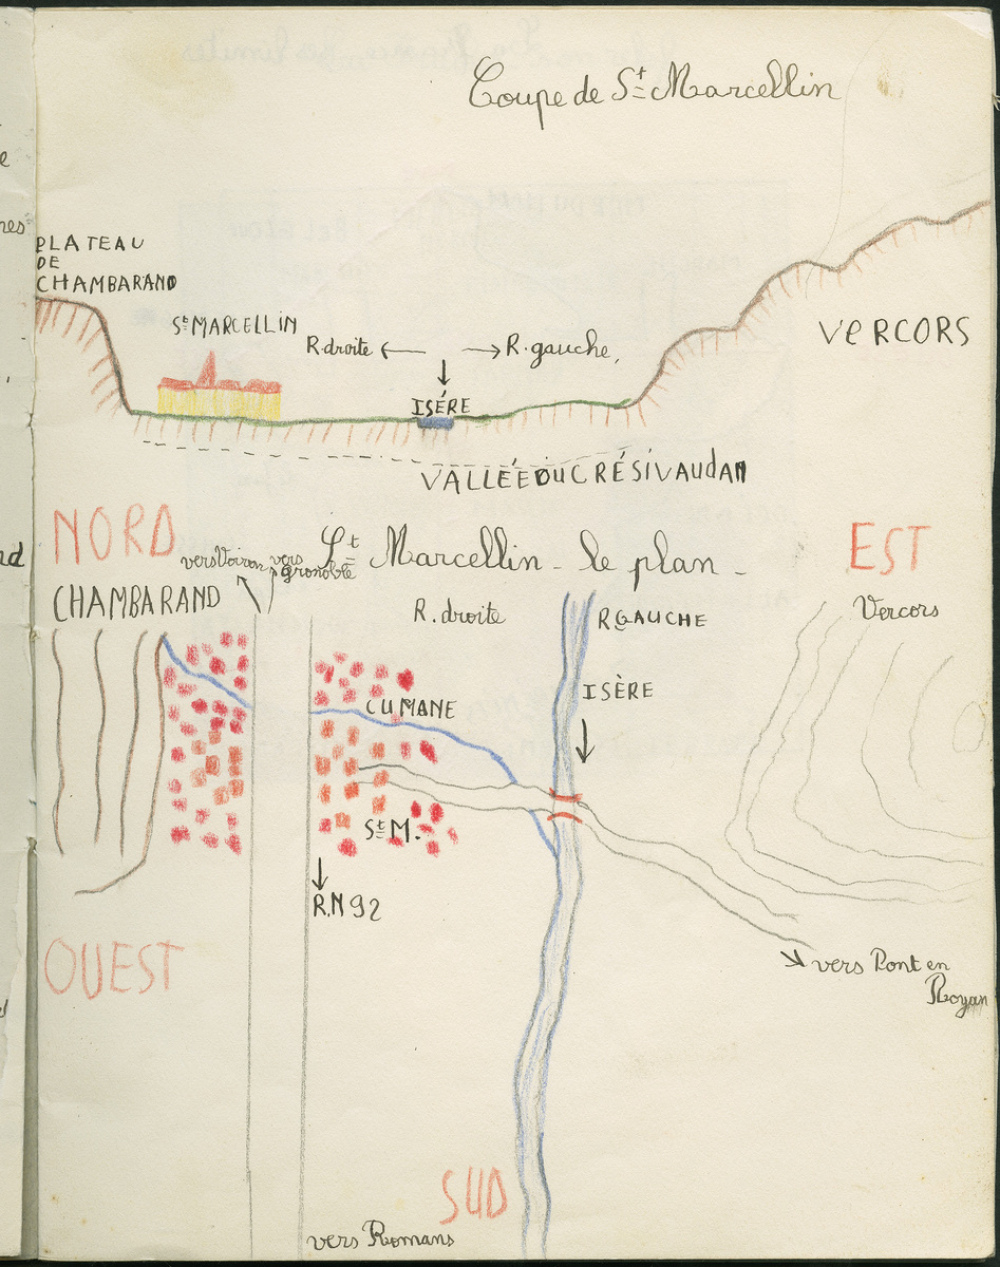 Coupe de St Marcellin
PLATEAU
DE
CHAMBARAND
St MARCELLIN
R. droite
R. gauche,
ISÉRE
VERCORS
VALLÉE DU CRÉSIVAUDAN
NORD
vers Voiron
vers
Gronoble
St Marcellin - le plan -
EST
CHAMBARAND
R. droite
R GAUCHE
Vercors
ISÈRE
CUMANE
St M.
R.N 92
OUEST
vers Pont en
Royan
SUD
vers Romans